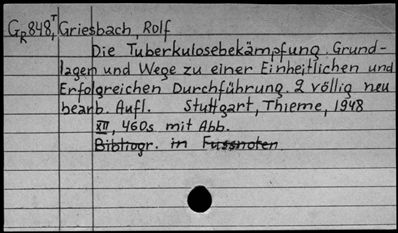 GR848,T Griesbach, Rolf
Die Tuberkulosebekämpfung. Grund-
lagen und Wege zu einer Einheitlichen und
Erfolgreichen Durchführung. 2 völlig neu
bearb. Aufl. Stuttgart, Thieme, 1948
XII, 460s mit Abb.
Bibliogr. in Fussnoten